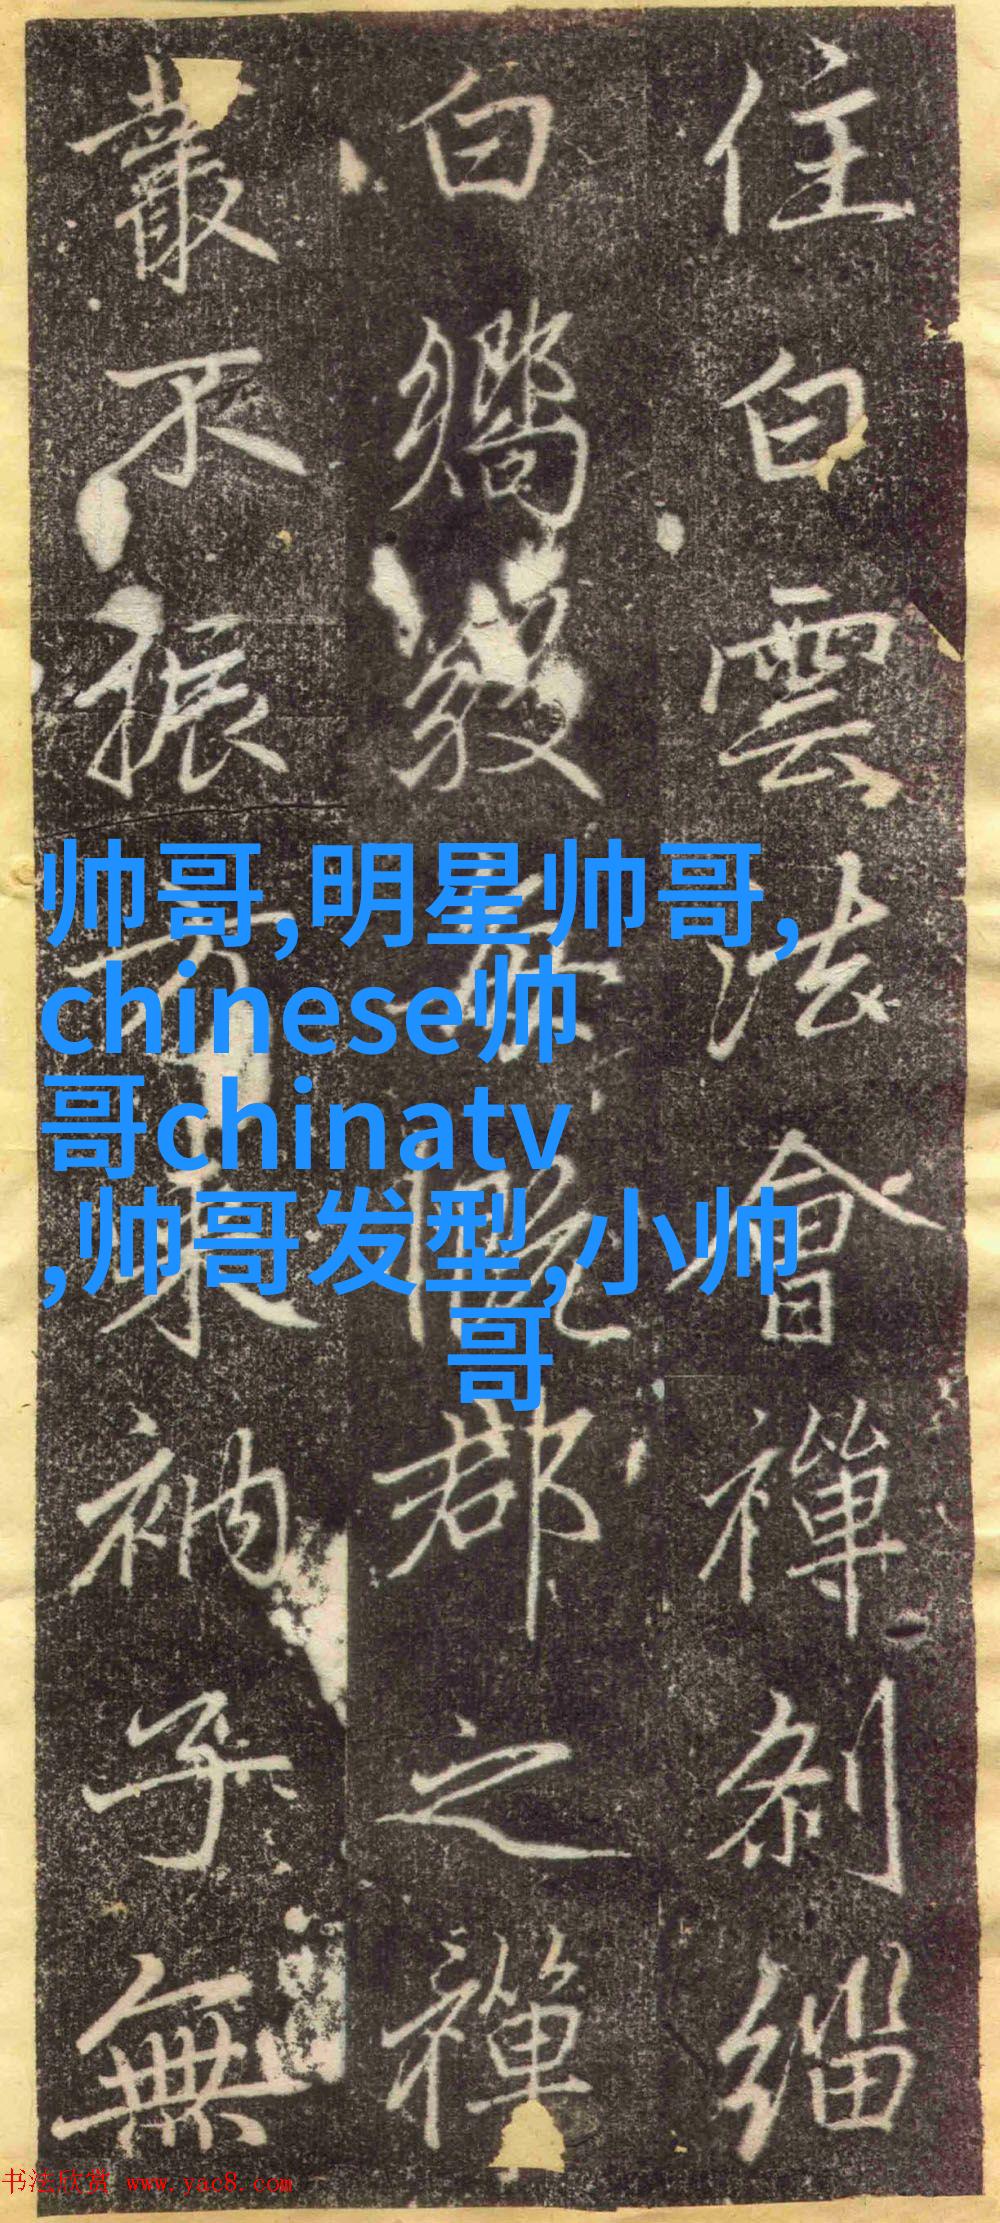 住白雲法會禪刹緇
白嚮郡之禪
叢不振方來衲子無
帅哥,明星帅哥,
chinese帅
哥chinatv
,帅哥发型,小帅
哥
书法欣赏 www.yac8.com